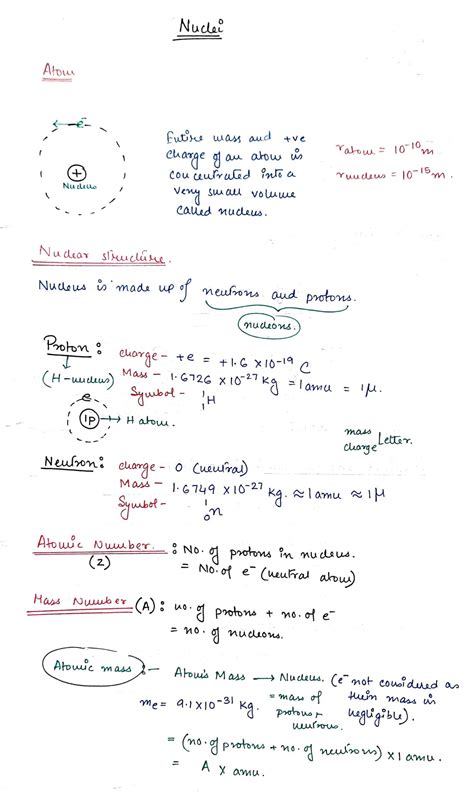 Nuclei
Atom
e⁻
+
Nucleus
Entire mass and +ve
charge of an atom is
concentrated into a
very small volume
called nucleus.
r atom = 10⁻¹⁰ m
r nucleus = 10⁻¹⁵ m
Nuclear structure.
Nucleus is made up of neutrons and protons.
nucleons.
Proton :
(H-nucleus)
charge - +e = +1.6 × 10⁻¹⁹ C
Mass - 1.6726 × 10⁻²⁷ kg = 1amu = 1μ.
Symbol - ¹₁H
e
1P → H atom.
mass
charge Letter.
Neutron : charge - 0 (neutral)
Mass - 1.6749 × 10⁻²⁷ kg. ≈ 1amu ≈ 1μ
Symbol - ¹₀n
Atomic Number. : No. of protons in nucleus.
(Z) = No. of e⁻ (neutral atom)
Mass Number (A) : no. of protons + no. of e⁻
= no. of nucleons.
Atomic mass :- Atom's Mass → Nucleus. (e⁻ not considered as
= mass of their mass is
me = 9.1×10⁻³¹ kg. protons + negligible).
neutrons.
= (no. of protons + no. of neutrons) × 1 amu.
= A × amu.